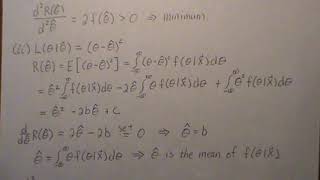 d²R(θ̂)/d²θ̂ = 2f(θ̂) > 0 ⇒ minimum
(c) L(θ|θ̂) = (θ-θ̂)²
R(θ̂) = E[(θ-θ̂)²] = ∫(θ-θ̂)² f(θ|x̃)dθ
= θ̂² ∫ f(θ|x̃)dθ - 2θ̂ ∫ θ f(θ|x̃)dθ + ∫ θ² f(θ|x̃)dθ
= θ̂² - 2bθ̂ + c
d/dθ̂ R(θ̂) = 2θ̂ - 2b set= 0 ⇒ θ̂ = b
θ̂ = ∫ θ f(θ|x̃)dθ ⇒ θ̂ is the mean of f(θ|x̃)